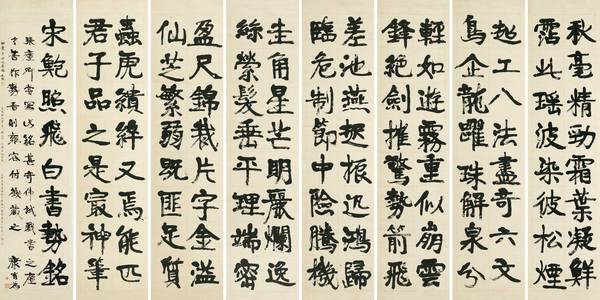 秋毫精勁霜葉凝鮮
霑此瑤波染彼松煙
超工八法盡奇六文
鳥企龍躍珠解泉分
輕如遊霧重似崩雲
鋒絕劍摧驚勢箭飛
差池燕起振迅鴻歸
臨危制節中險騰機
圭角星芒明麗爛逸
絲縈髮垂平理端密
盈尺錦裁片字金溢
仙芝繁弱既匪足質
蟲虎續綷又焉能匹
君子品之是最神筆
宋鮑照飛白書勢銘
康有為